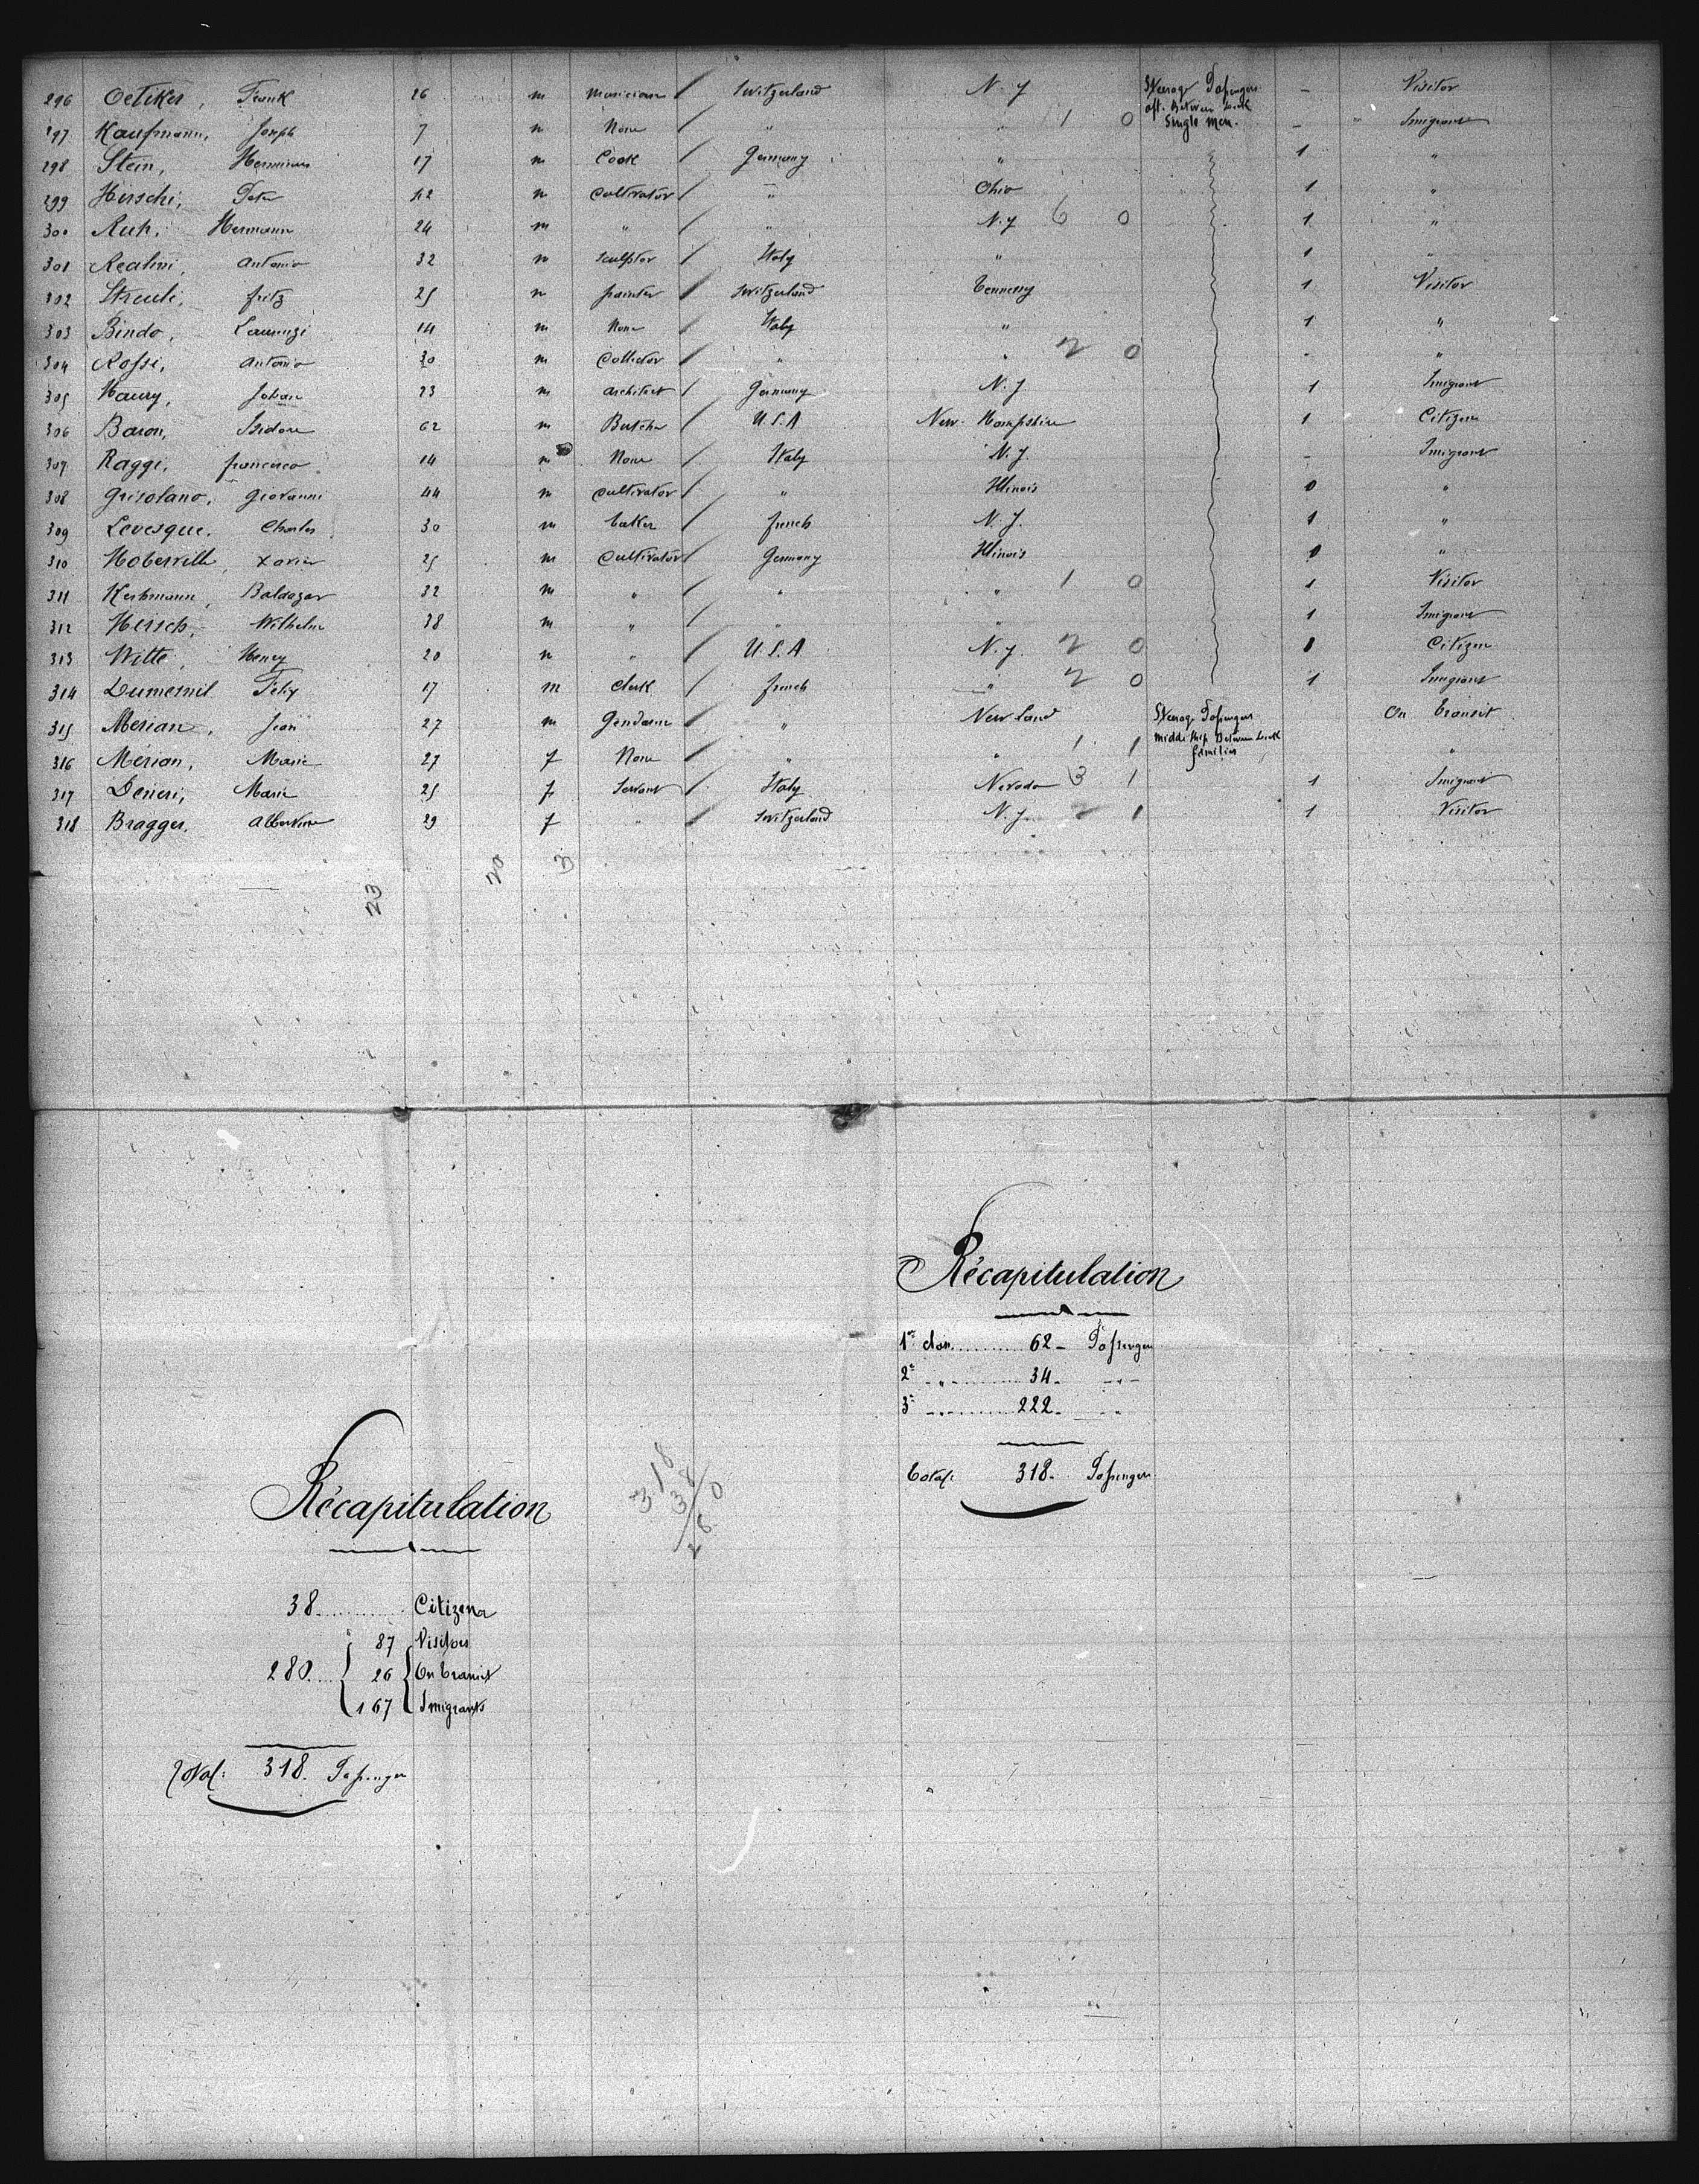 296 Oetiker, Frank 26 m musician / Switzerland N. Y Steerage Passengers aft. Between deck Single men. - Visitor
297 Kaufmann, Joseph 7 m None / " " 1 0 - " Imigrant
298 Stein, 17 m Cook / Germany " 1 "
299 Hirschi, Peter 42 m Cultivator / " Ohio 1 "
300 Ruh, Hermann 24 m " / " N. Y 6 0 1 "
301 Realini, Antonio 32 m Sculptor / Italy " 1 "
302 Streuli, fritz 25 m painter / Switzerland Tennessy 1 Visitor
303 Bindo, 14 m None / Italy " 1 "
304 Rossi, Antonio 30 m / " " 2 0 - "
305 Haury, Johan 23 m architect / Germany N. Y. 1 Imigrant
306 Baron, Isidore 62 m Butcher / U. S. A New-Hampshire 1 Citizen
307 Raggi, francesco 14 m None / Italy N. Y. - Imigrant
308 Grisolano, Giovanni 44 m cultivator / " Illinois 0 "
309 Levesque, Charles 30 m baker / french N. Y. 1 "
310 Xavier 25 m Cultivator / Germany Illinois 0 "
311 Baldazar 32 m " / " " 1 0 1 Visitor
312 Hirsch, Wilhelm 38 m " / " " 1 Imigrant
313 Witte, Henry 20 m " / U. S. A N. Y. 2 0 Citizen
314 Dumesnil Felix 17 m Clerk / french " 2 0 1 Imigrant
315 Merian, Jean 27 m Gendarm / " New land Steerage Passengers middle ship Between deck families On transit
316 Mérian, Marie 27 f None / " " 1 1 "
317 Deneri, Marie 25 f Servant / Italy Nevada 3 1 1 Imigrant
318 Bragger, Albertine 29 f " / Switzerland N. Y. 2 1 1 Visitor
23 20 3
Récapitulation
1re class 62 - Passengers
2e " 34 - "
3e " 222 - "
Total: 318 - Passengers
Récapitulation
318
38
280
38 Citizens
87 Visitors
280 { 26 { On transit
167 Imigrants
Total: 318. Passengers